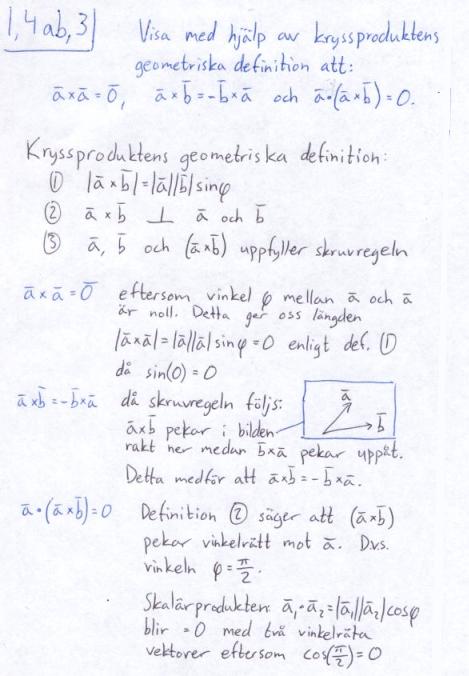 1,4ab,3
Visa med hjälp av kryssproduktens
geometriska definition att:
ā×ā=0̄, ā×b̄=-b̄×ā och ā•(ā×b̄)=0.
Kryssproduktens geometriska definition:
① |ā×b̄|=|ā||b̄|sinφ
② ā×b̄ ⊥ ā och b̄
③ ā, b̄ och (ā×b̄) uppfyller skruvregeln
ā×ā=0̄ eftersom vinkel φ mellan ā och ā
är noll. Detta ger oss längden
|ā×ā|=|ā||ā|sinφ=0 enligt def. ①
då sin(0)=0
ā×b̄=-b̄×ā då skruvregeln följs:
ā
b̄
ā×b̄ pekar i bilden
rakt ner medan b̄×ā pekar uppåt.
Detta medför att ā×b̄=-b̄×ā.
ā•(ā×b̄)=0 Definition ② säger att (ā×b̄)
pekar vinkelrätt mot ā. Dvs.
vinkeln φ=π/2.
Skalärprodukten: ā₁•ā₂=|ā₁||ā₂|cosφ
blir =0 med två vinkelräta
vektorer eftersom cos(π/2)=0